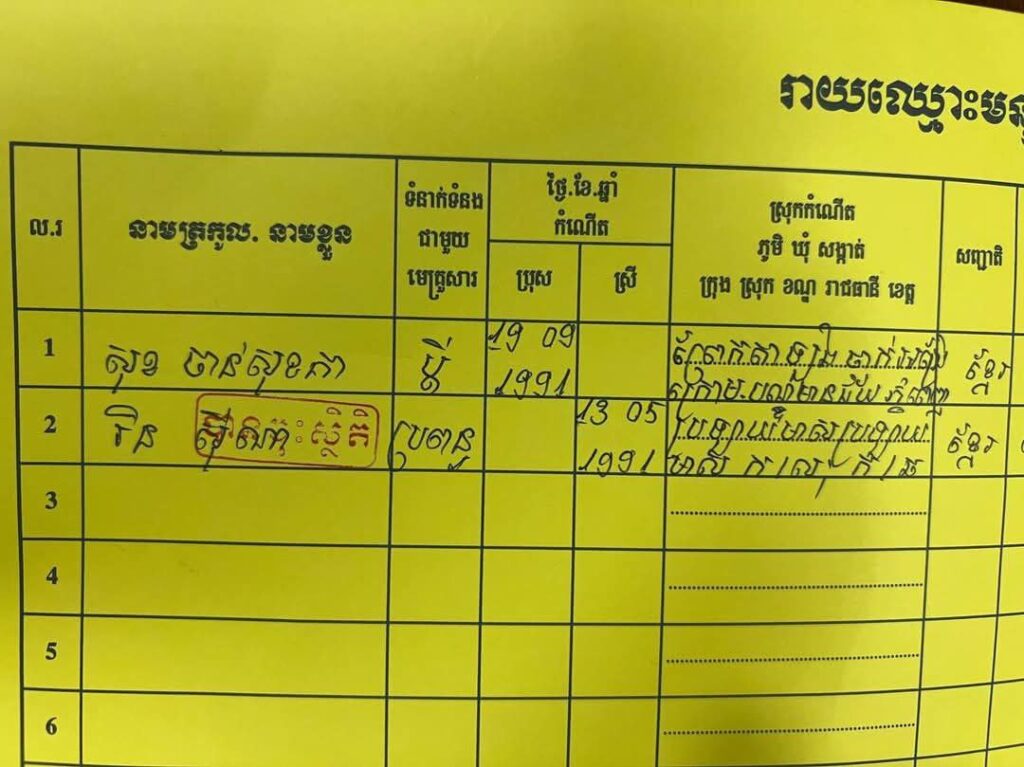 រាយឈ្មោះមនុ
ល.រ
នាមត្រកូល. នាមខ្លួន
ទំនាក់ទំនង
ជាមួយ
មេគ្រួសារ
ថ្ងៃ.ខែ.ឆ្នាំ
កំណើត
ប្រុស
ស្រី
ស្រុកកំណើត
ភូមិ ឃុំ សង្កាត់
ក្រុង ស្រុក ខណ្ឌ រាជធានី ខេត្ត
សញ្ជាតិ
1
សុខ ចាន់សុខភា
ប្តី
19 09
1991
ព្រែកតា
មានជ័យ ភ្នំពេញ
ខ្មែរ
2
រិន
ប្រពន្ធ
13 05
1991
ខ្មែរ
3
4
5
6